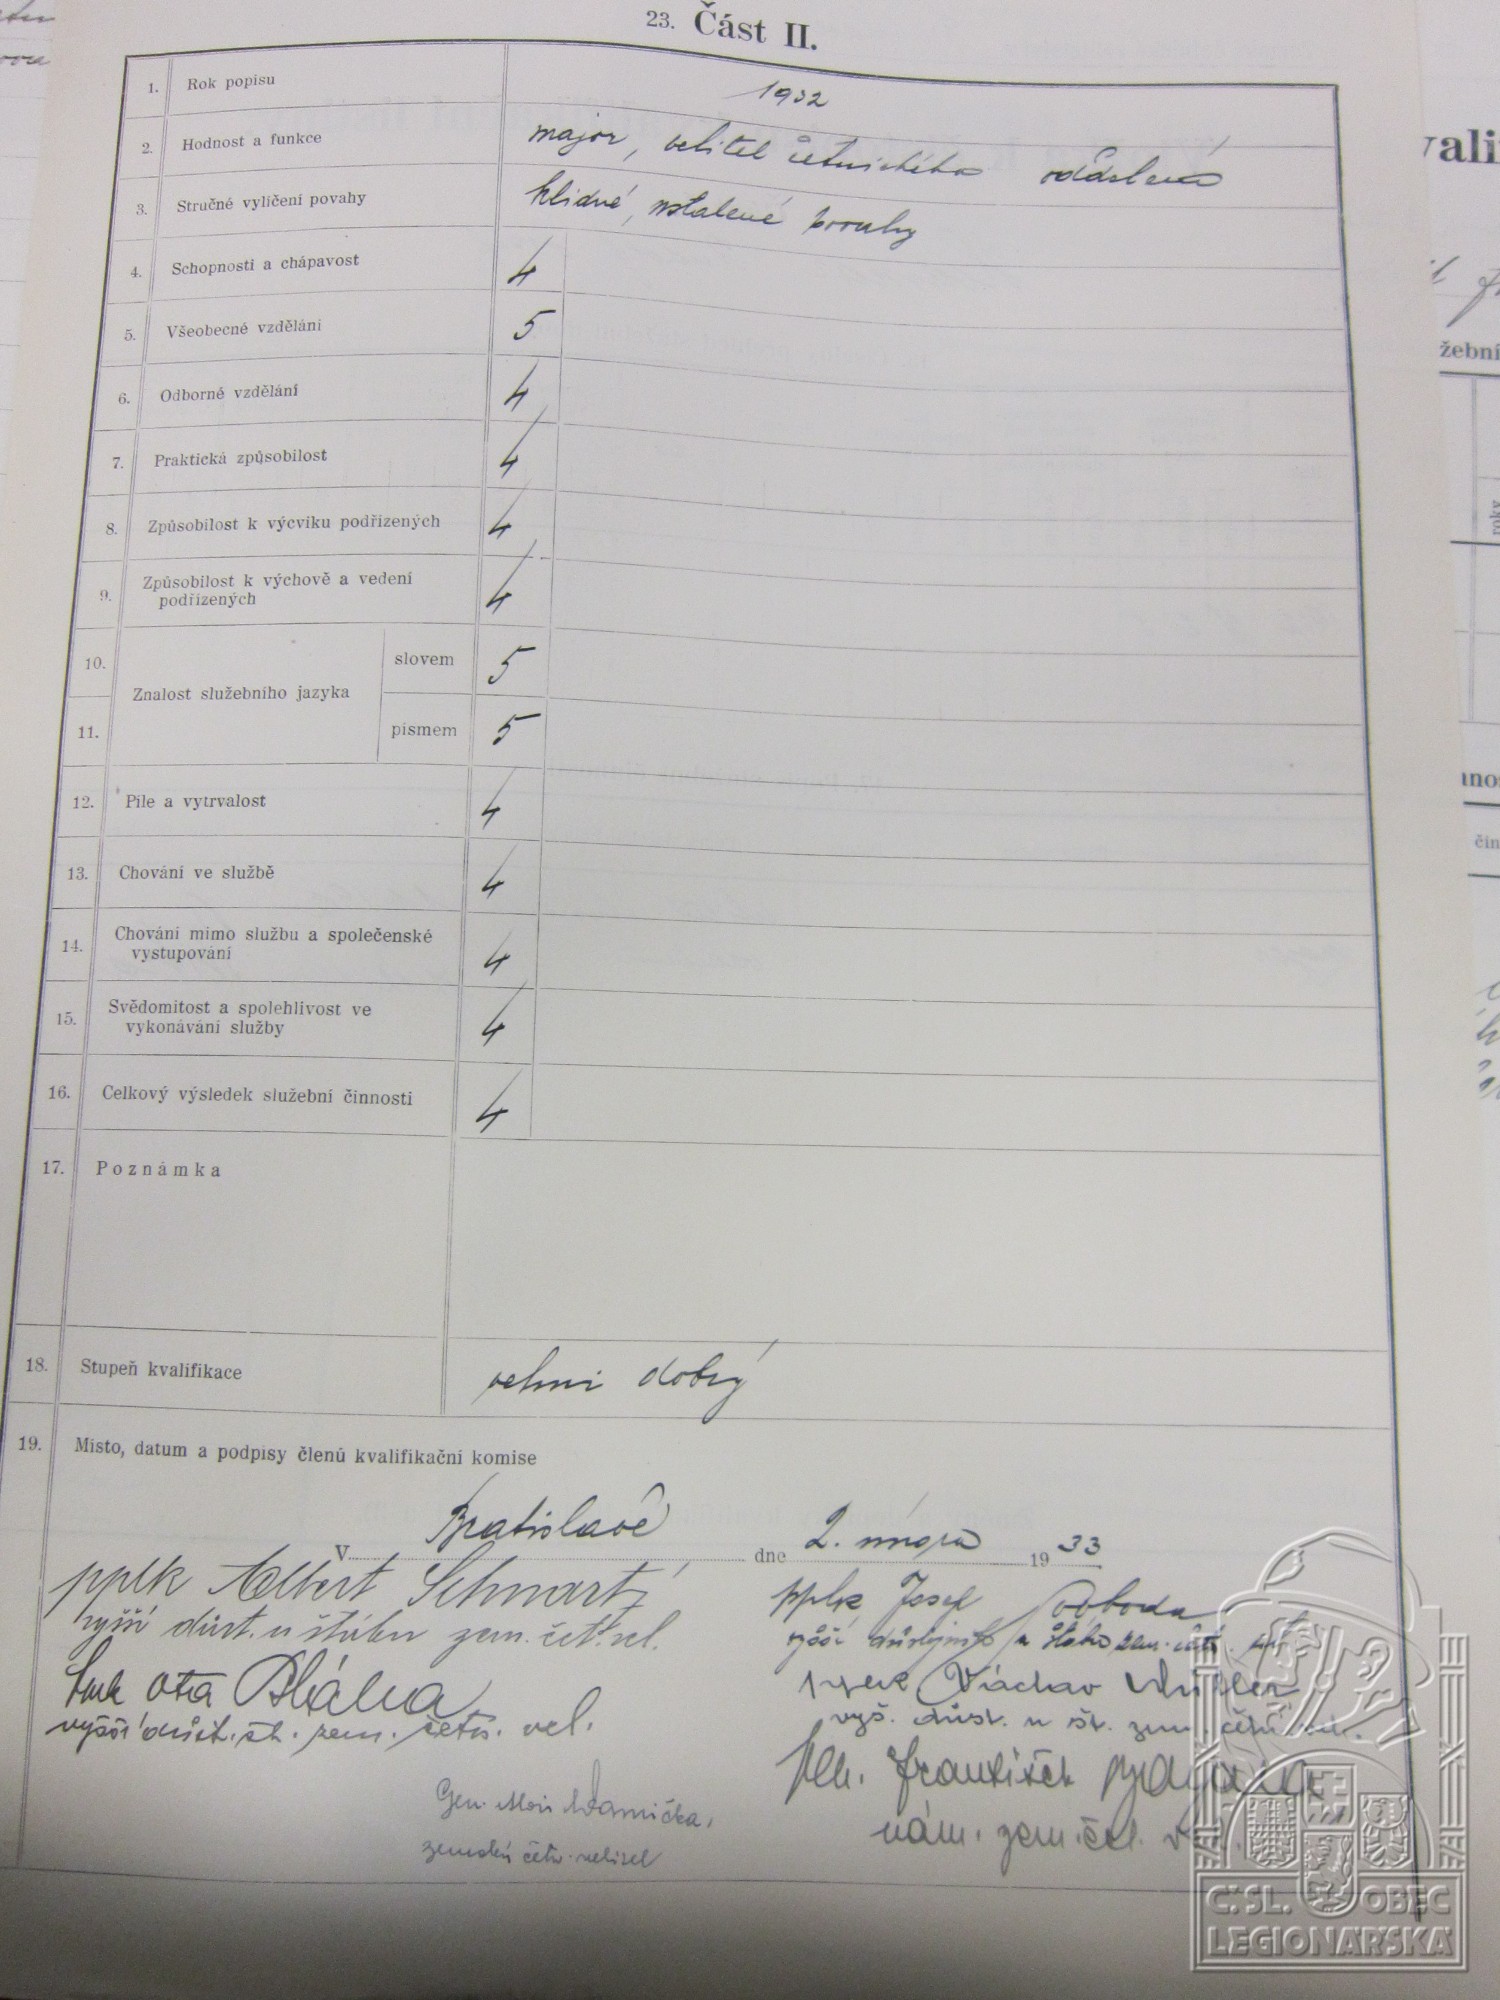 23. Část II.
1. Rok popisu 1932
2. Hodnost a funkce major, velitel četnického oddělení
3. Stručné vylíčení povahy klidné, ustálené povahy
4. Schopnosti a chápavost 4
5. Všeobecné vzdělání 5
6. Odborné vzdělání 4
7. Praktická způsobilost 4
8. Způsobilost k výcviku podřízených 4
9. Způsobilost k výchově a vedení
podřízených 4
10. slovem 5
Znalost služebního jazyka
11. písmem 5
12. Píle a vytrvalost 4
13. Chování ve službě 4
14. Chování mimo službu a společenské
vystupování 4
15. Svědomitost a spolehlivost ve
vykonávání služby 4
16. Celkový výsledek služební činnosti 4
17. Poznámka
18. Stupeň kvalifikace velmi dobrý
19. Místo, datum a podpisy členů kvalifikační komise
V Bratislavě dne 2. února 1933
pplk Albert Schwartz
vyšší důst. u štábu zem. čet. vel.
pplk Josef Svoboda
Ota Bláha
vyšší důst. št. zem. četn. vel.
Václav
vyš. důst. u št. zem. četn. vel.
František
nám. zem. čet. vel.
Gen.
zemský četn. velitel
Č.SL. OBEC
LEGIONÁŘSKÁ